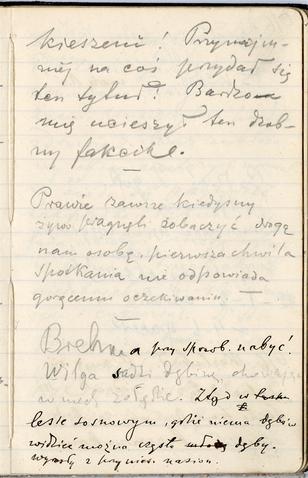 kieszeni! Przynajm-
niej na coś przydał się
ten tytuł! Bardzo
mię ucieszył ten drob-
ny
Prawie zawsze kiedyśmy
żywo pragnęli zobaczyć drogą
nam osobę, pierwsza chwila
spotkania nie odpowiada
gorącemu oczekiwaniu.
Brehma przy sposob. nabyć!
Wilga sadzi dębinę, chowając
w niej żołędzie. Ztąd w
lesie sosnowym, gdzie niema dębów
widzieć można częste dęby
wyrosłe z nasion.